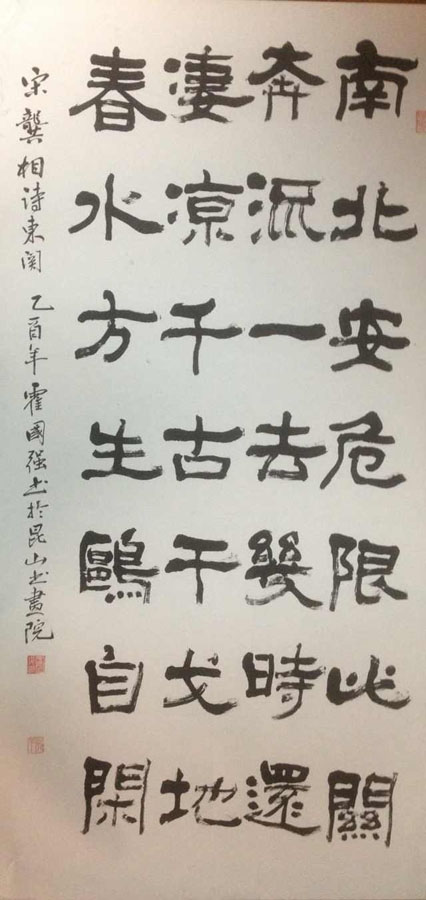 南北安危限此關
奔流一去幾時還
凄凉千古干戈地
春水方生鷗自閑
宋龔相诗東関 乙酉年 霍國强书於昆山书畫院